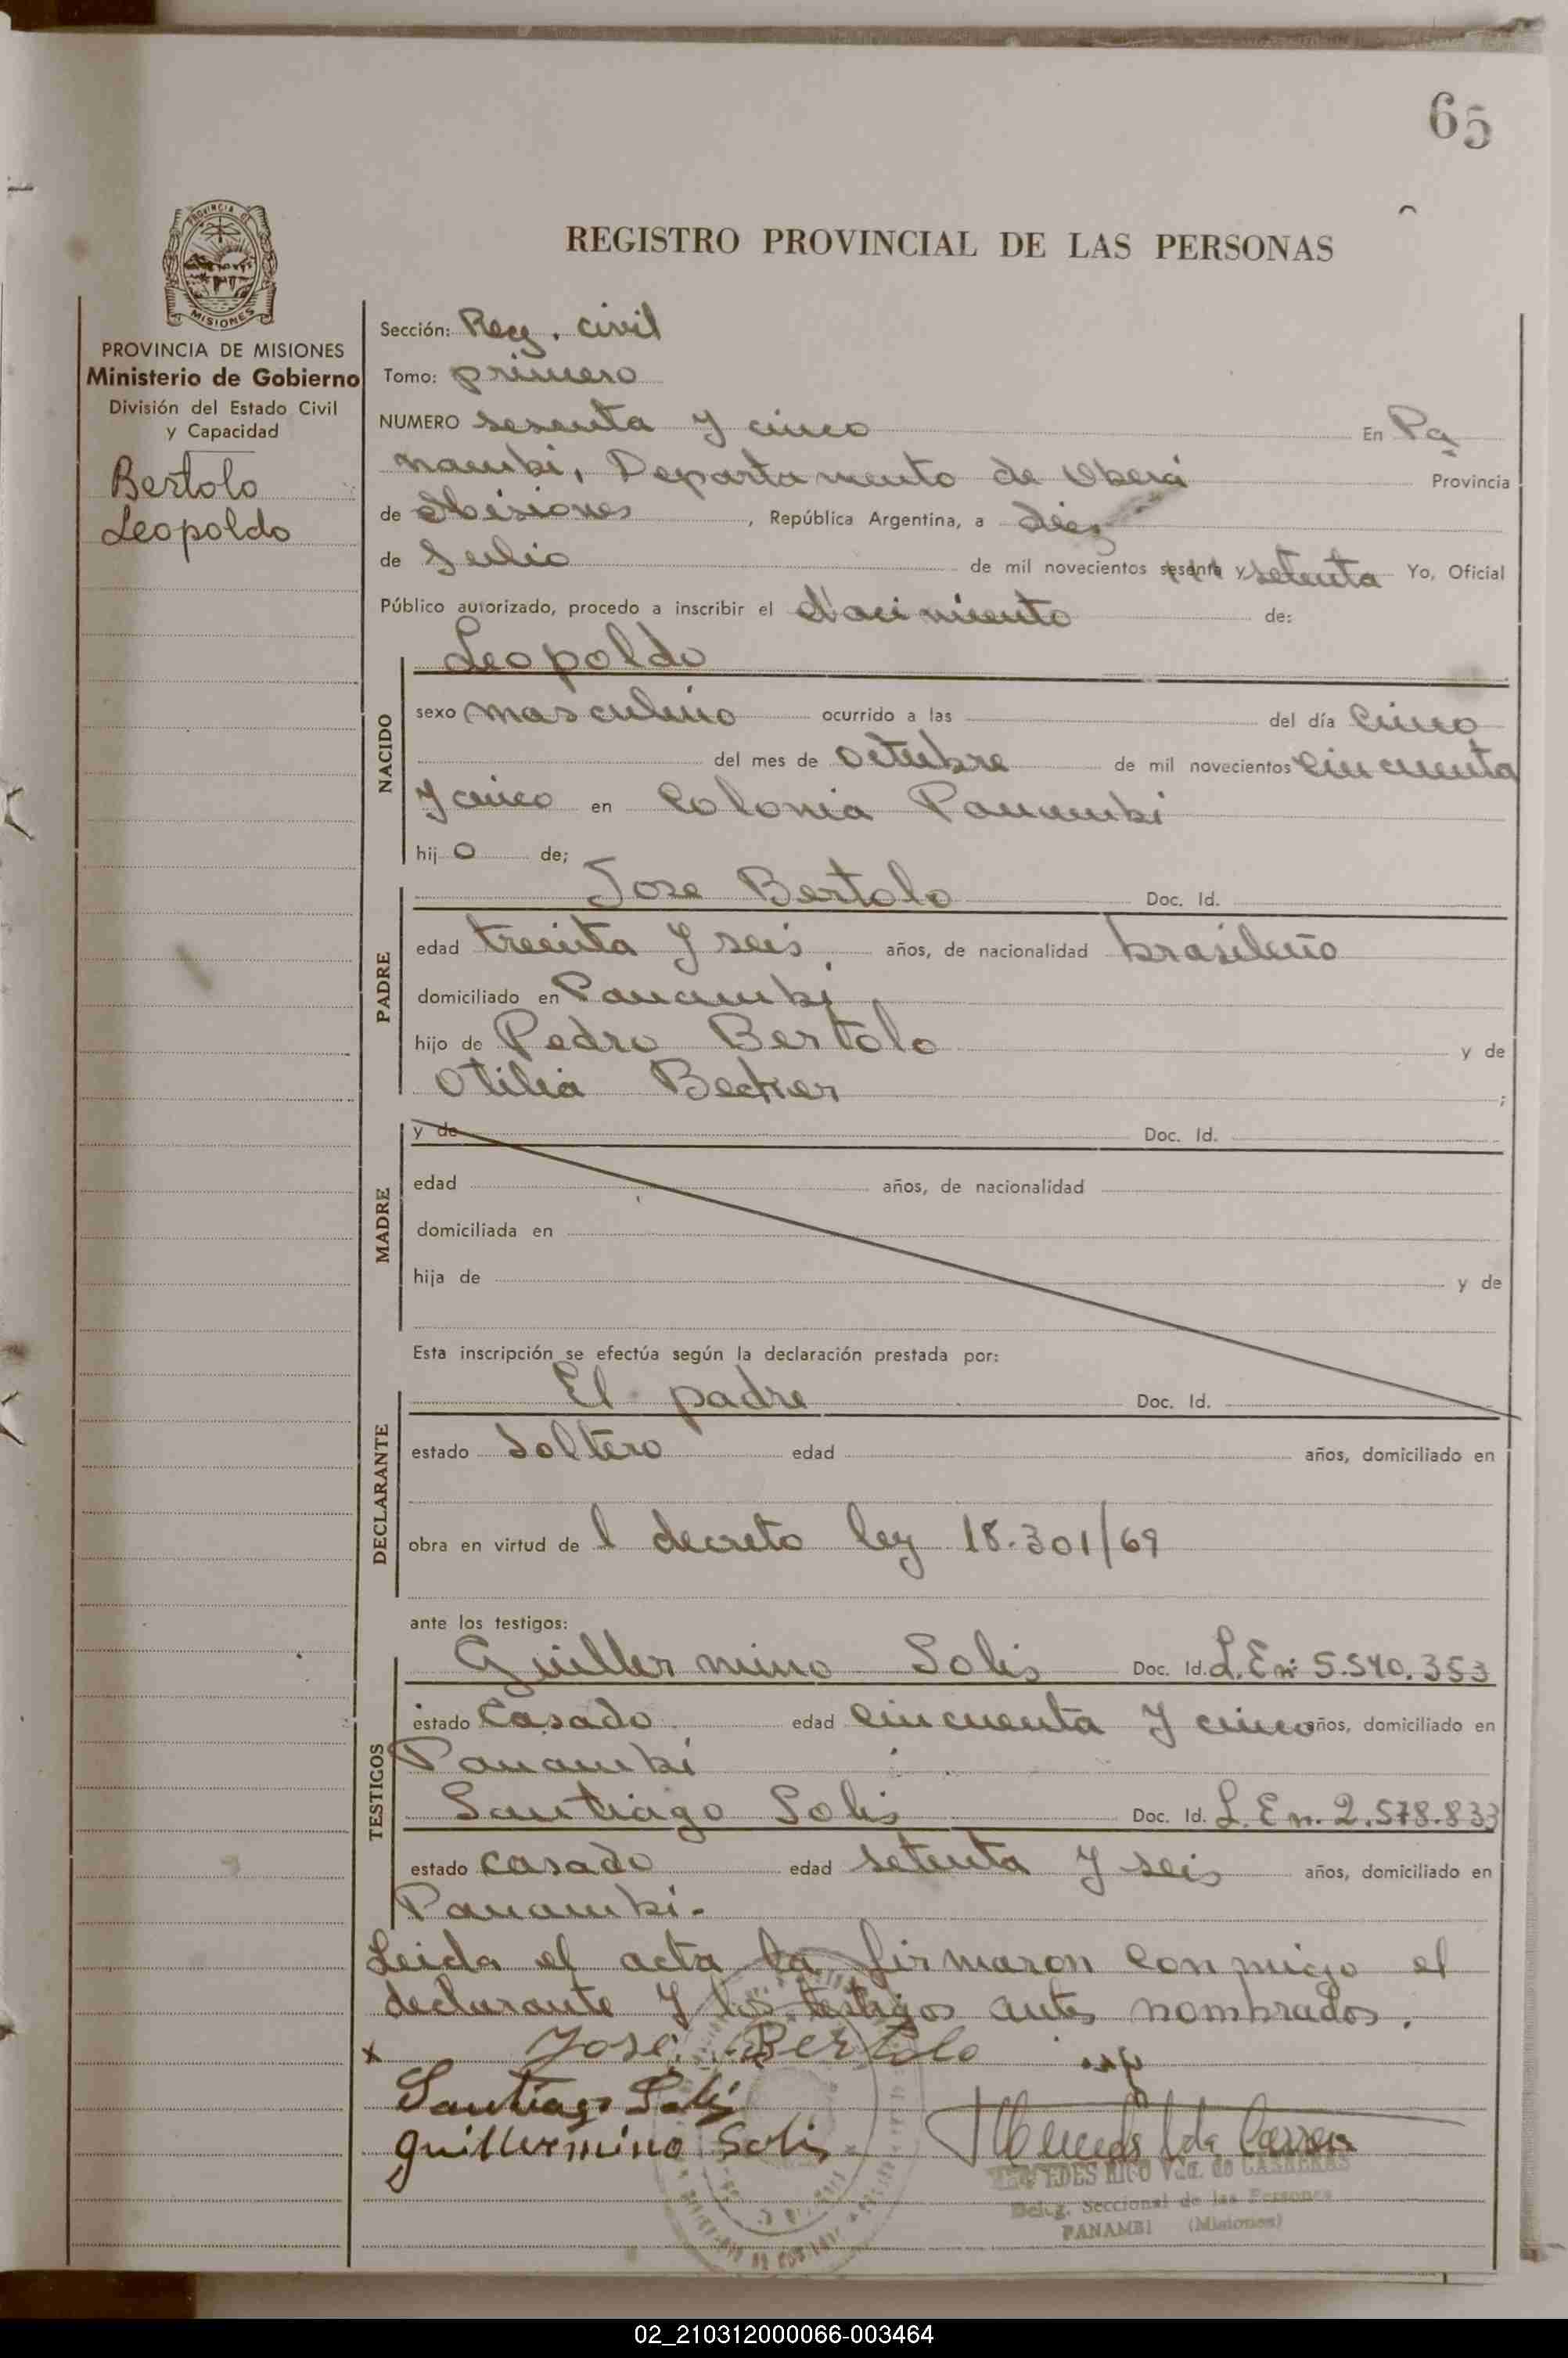 65
REGISTRO PROVINCIAL DE LAS PERSONAS
PROVINCIA DE
MISIONES
PROVINCIA DE MISIONES
Ministerio de Gobierno
División del Estado Civil
y Capacidad
Bertolo
Leopoldo
Sección: Reg. civil
Tomo: primero
NUMERO sesenta y cinco En Pa
nambi, Departamento de Oberá Provincia
de Misiones, República Argentina, a diez
de Julio de mil novecientos sesenta y setenta Yo, Oficial
Público autorizado, procedo a inscribir el Nacimiento de:
NACIDO
Leopoldo
sexo masculino ocurrido a las del día cinco
del mes de octubre de mil novecientos cincuenta
y cinco en Colonia Panambi
hijo de;
PADRE
Jose Bertolo Doc. Id.
edad treinta y seis años, de nacionalidad brasileño
domiciliado en Panambi
hijo de Pedro Bertolo y de
Otilia Becker ;
MADRE
y de Doc. Id.
edad años, de nacionalidad
domiciliada en
hija de y de
Esta inscripción se efectúa según la declaración prestada por:
DECLARANTE
El padre Doc. Id.
estado Soltero edad años, domiciliado en
obra en virtud de l decreto ley 18.301/69
ante los testigos:
TESTIGOS
Guillermino Solis Doc. Id. L. E nº 5.540.353
estado Casado edad cincuenta y cinco años, domiciliado en
Panambi
Santiago Solis Doc. Id. L. E n. 2.578.833
estado casado edad setenta y seis años, domiciliado en
Panambi.
Leida el acta la firmaron conmigo el
declarante y los testigos antes nombrados.
x José Bertolo
Santiago Solis
Guillermino Solis
MERCEDES RICO Vda. de CARRERAS
Deleg. Seccional de las Personas
PANAMBI (Misiones)
02_210312000066-003464